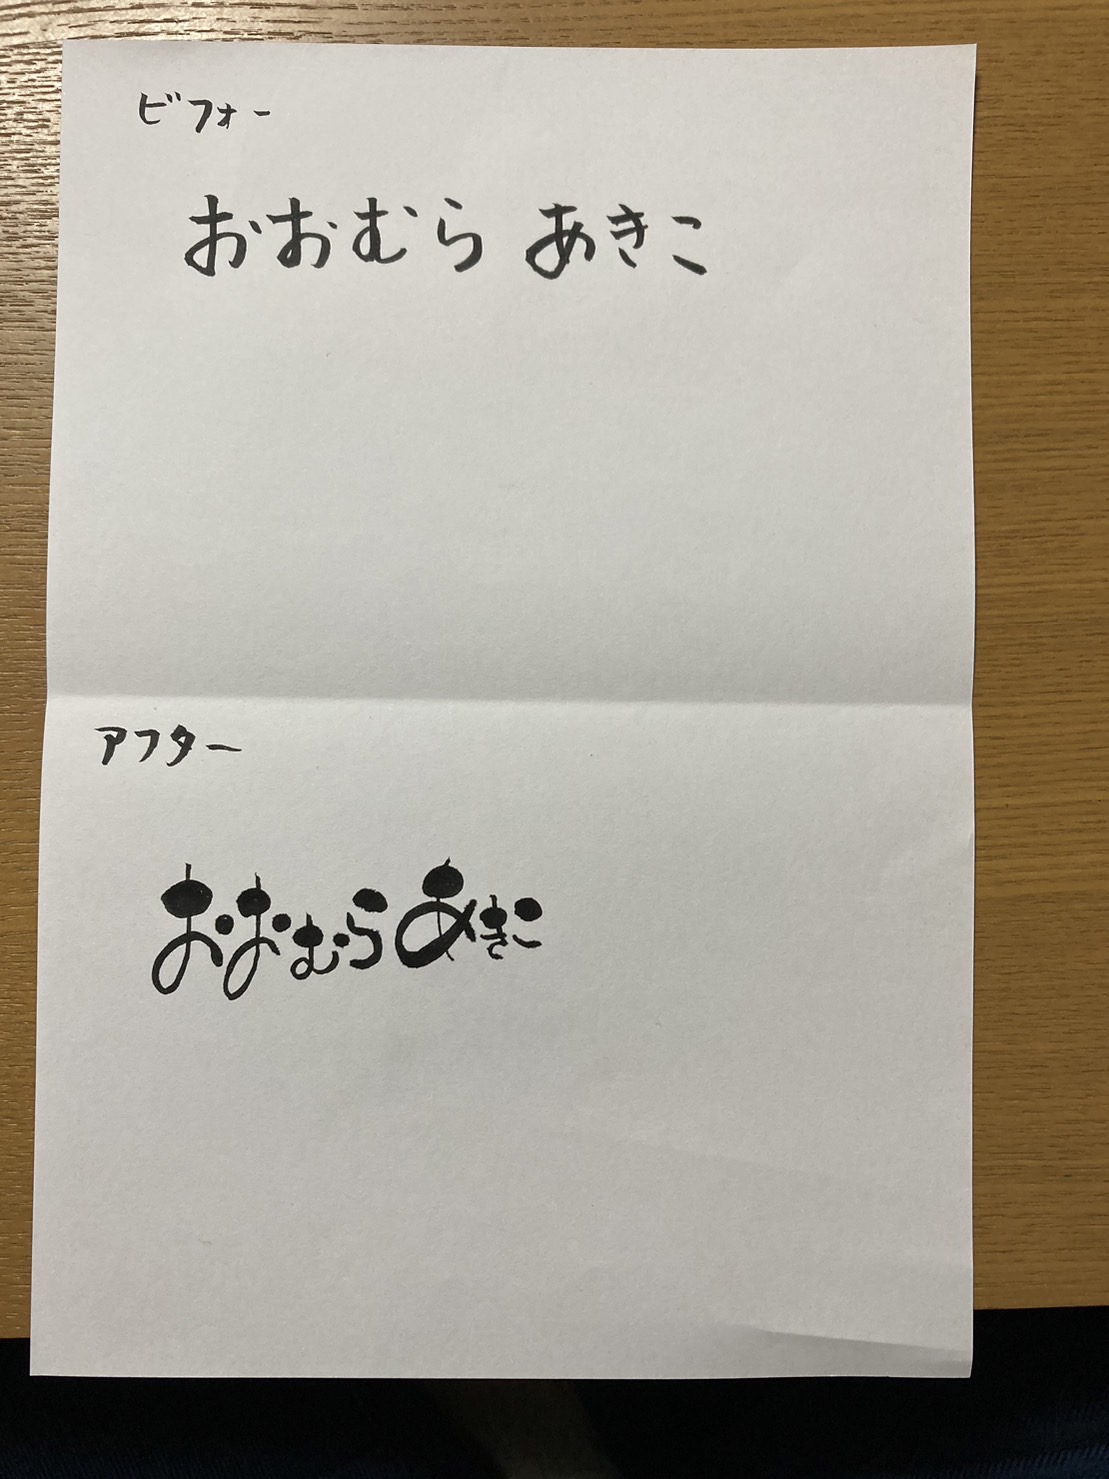 ビフォー
おおむら あきこ
アフター
おおむら あきこ